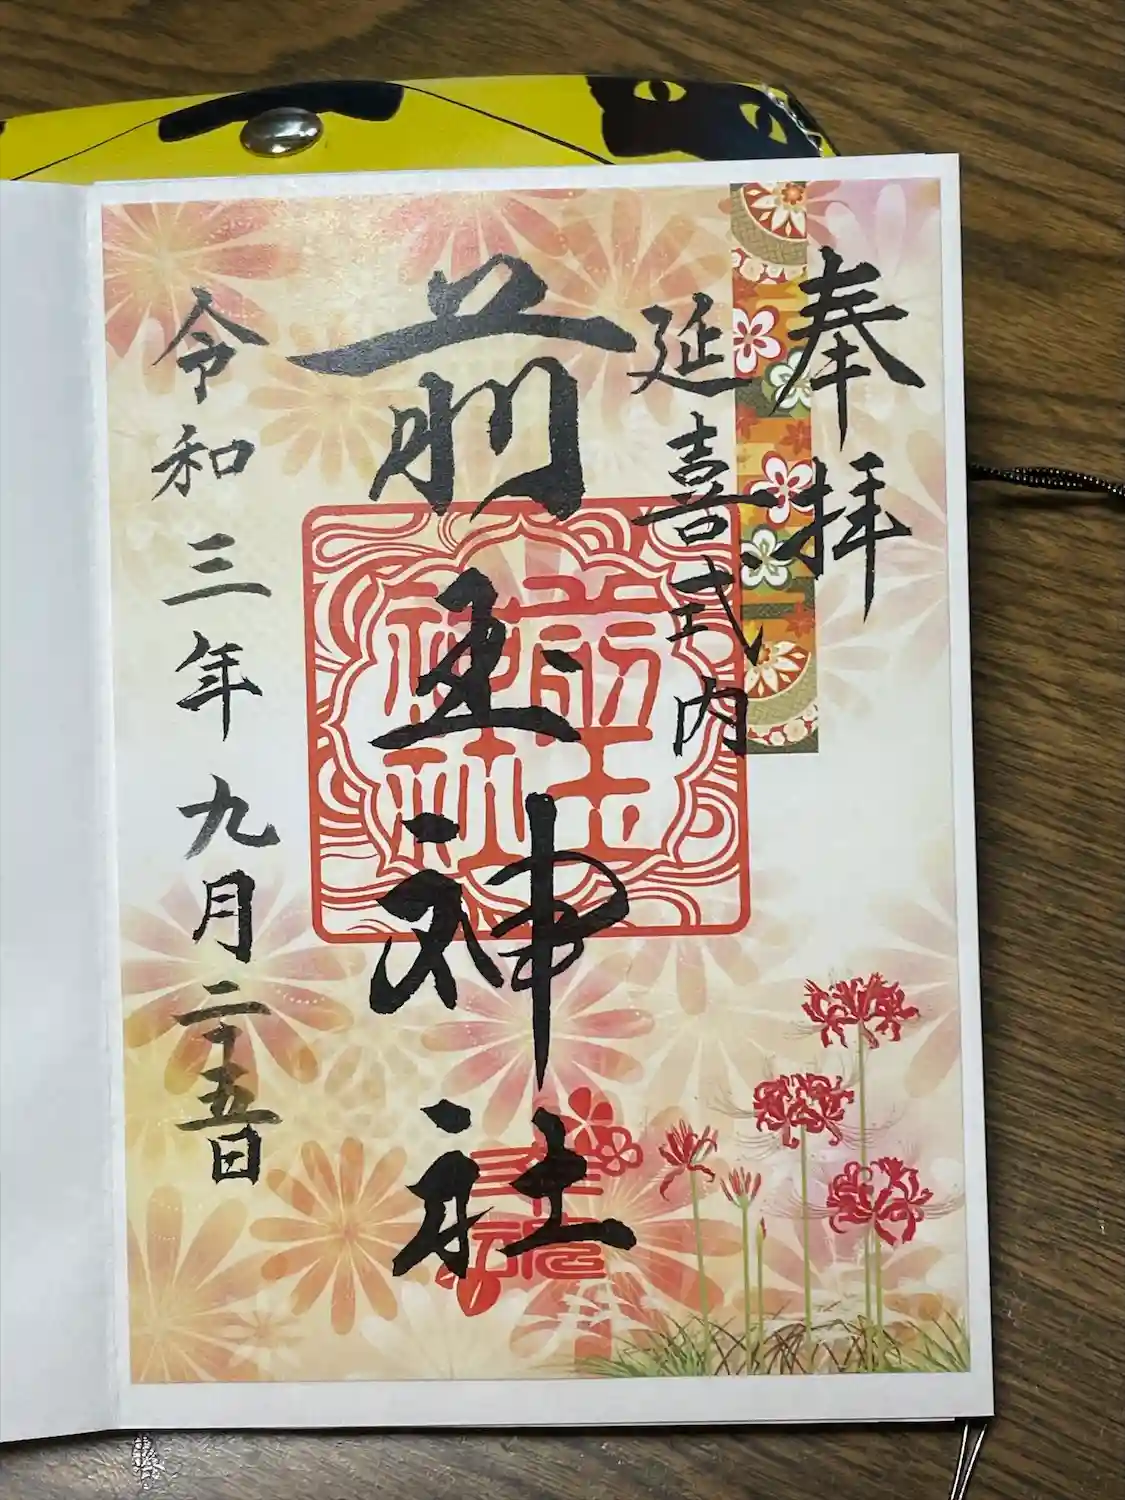 奉拝
延喜式内
前玉神社
前玉神社
令和三年九月二十五日